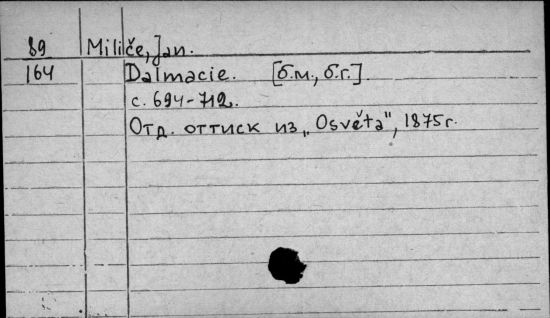 89 Miliče, Jan.
164 Dalmacie. [б.м., б.г.].
с. 694-712.
Отд. оттиск из „Osvěta", 1875г.